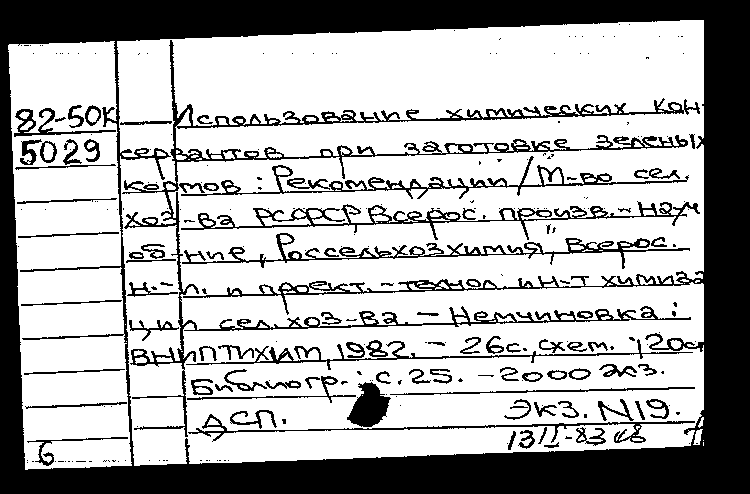 82-50К Использование химических кон-
5029 сервантов при заготовке зеленых
кормов : Рекомендации / М-во сел.
хоз-ва РСФСР, Всерос. произв.-науч
об-ние „Россельхозхимия", Всерос.
н.-и. и проект.-технол. ин-т химиза
ции сел. хоз-ва. - Немчиновка :
ВНИПТИХИМ, 1982. - 26с., схем. ; 20см
Библиогр.: с. 25. - 2000 экз.
ДСП. Экз. N19.
6